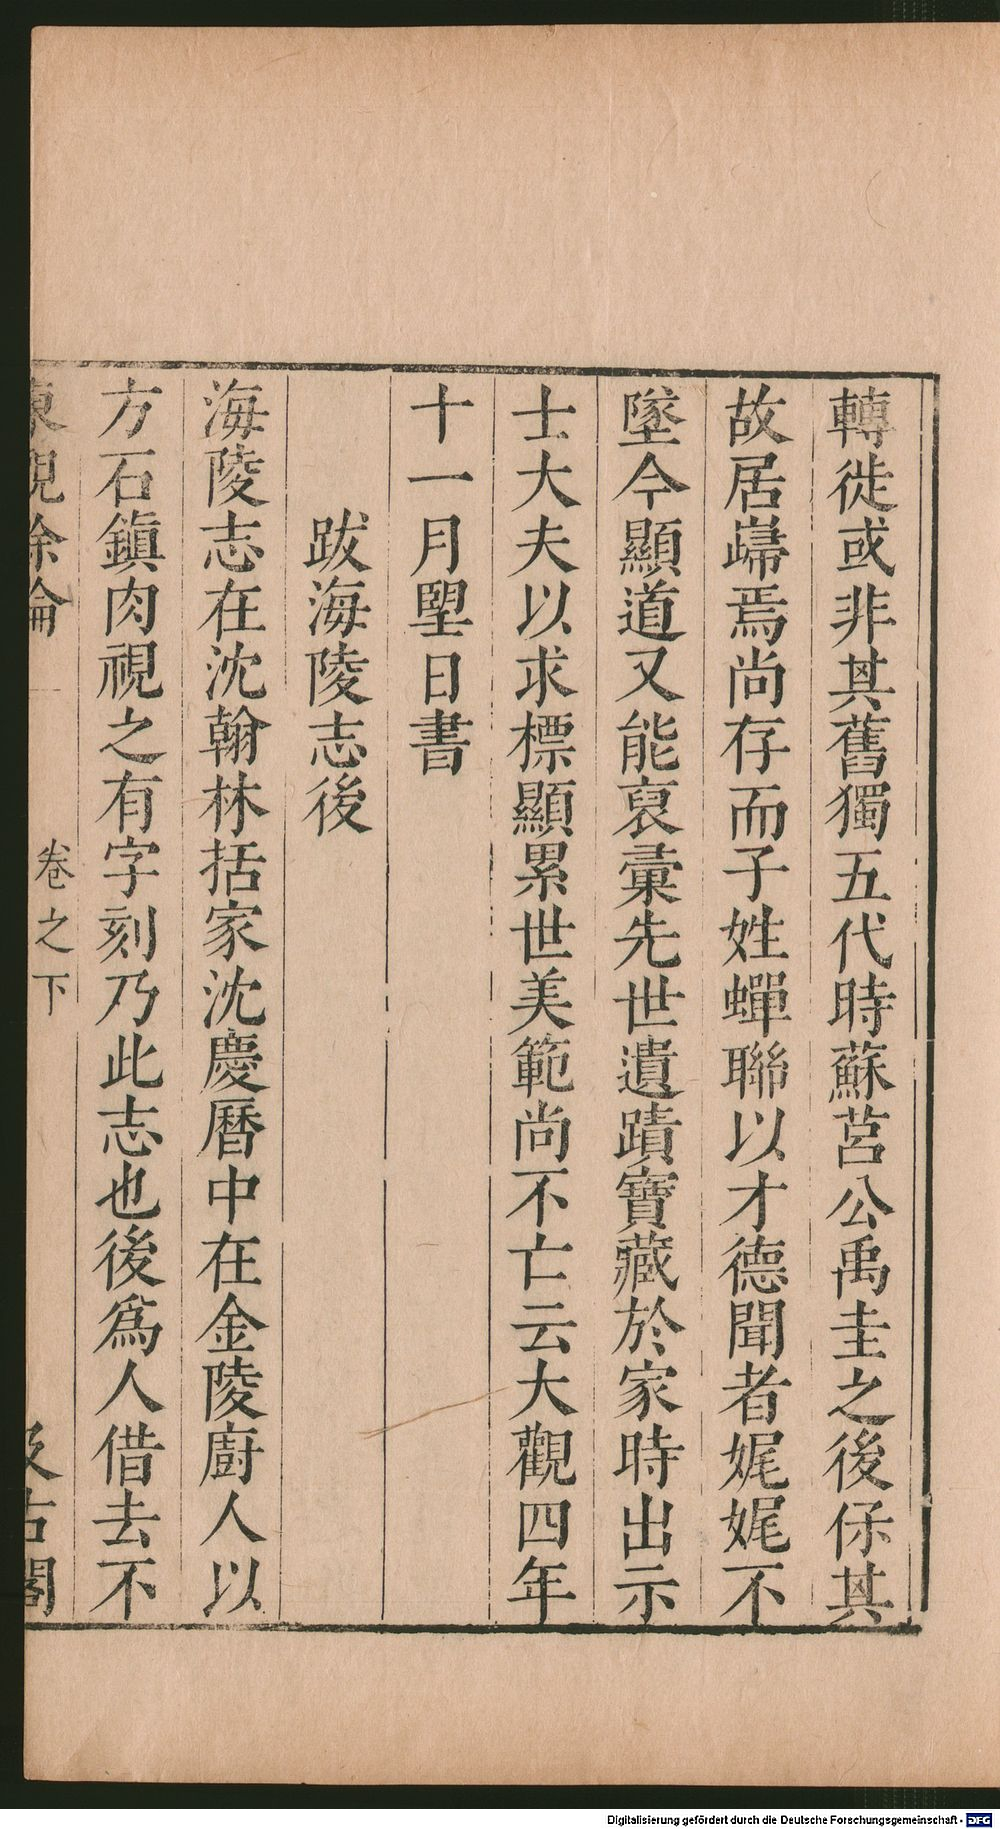 轉徙或非其舊獨五代時蘇莒公禹圭之後伓其
故居巋焉尚存而子姓蟬聯以才德聞者娓娓不
墜今顯道又能裒彙先世遺蹟寶藏於家時出示
士大夫以求標顯累世美範尚不亡云大觀四年
十一月朢日書
跋海陵志後
海陵志在沈翰林括家沈慶曆中在金陵廚人以
方石鎮肉視之有字刻乃此志也後爲人借去不
東觀余論
卷之下
汲古閣
Digitalisierung gefördert durch die Deutsche Forschungsgemeinschaft - DFG